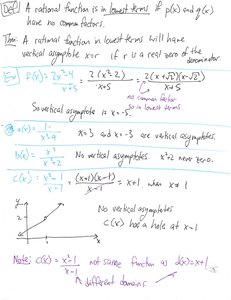 Def A rational function is in lowest terms if p(x) and q(x)
have no common factors.
Thm: A rational function in lowest terms will have
vertical asymptote x=r if r is a real zero of the
denominator.
Ex R(x) = 2x²-4 / x+5 = 2(x²-2) / x+5 = 2(x+√2)(x-√2) / x+5
no common factor
so in lowest terms
So vertical asymptote is x=-5.
a(x) = 1 / x²-9 x=3 and x=-3 are vertical asymptotes.
b(x) = x³ / x²+2 No vertical asymptotes x²+2 never zero.
c(x) = x²-1 / x-1 = (x+1)(x-1) / x-1 = x+1 when x≠1
y
2
1
1
x
No vertical asymptotes
C(x) has a hole at x=1
Note: c(x) = x²-1 / x-1 not same function as d(x)=x+1
different domains